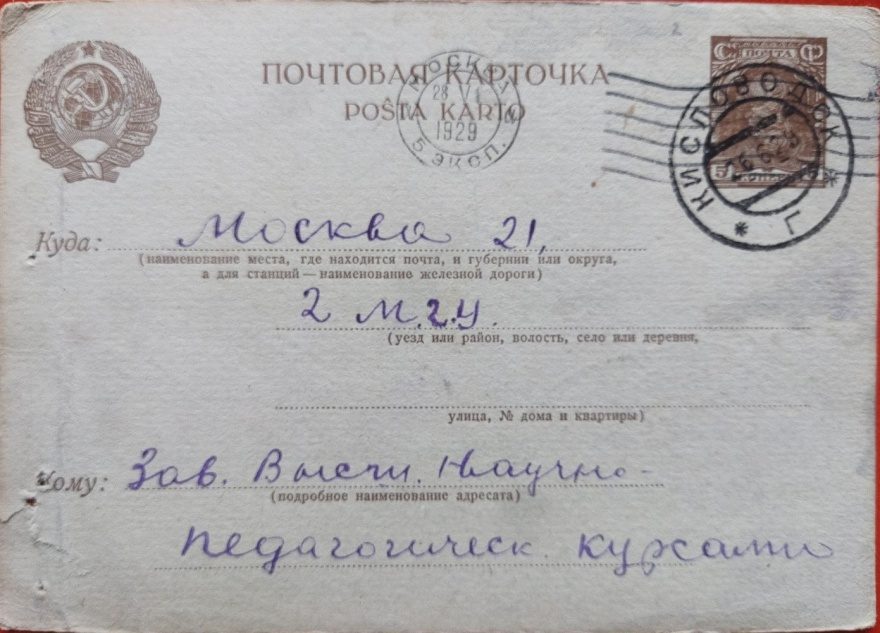 ПОЧТОВАЯ КАРТОЧКА
POŜTA KARTO
МОСКВА
28 VI
1929
5 ЭКСП.
ПОЧТА
КИСЛОВОДСК
26 6 29
Г
Куда: Москва 21,
(наименование места, где находится почта, и губернии или округа,
а для станций — наименование железной дороги)
2 М.Г.У.
(уезд или район, волость, село или деревня,
улица, № дома и квартиры)
Кому: Зав. Высши. Научно-
(подробное наименование адресата)
педагогическ. курсами